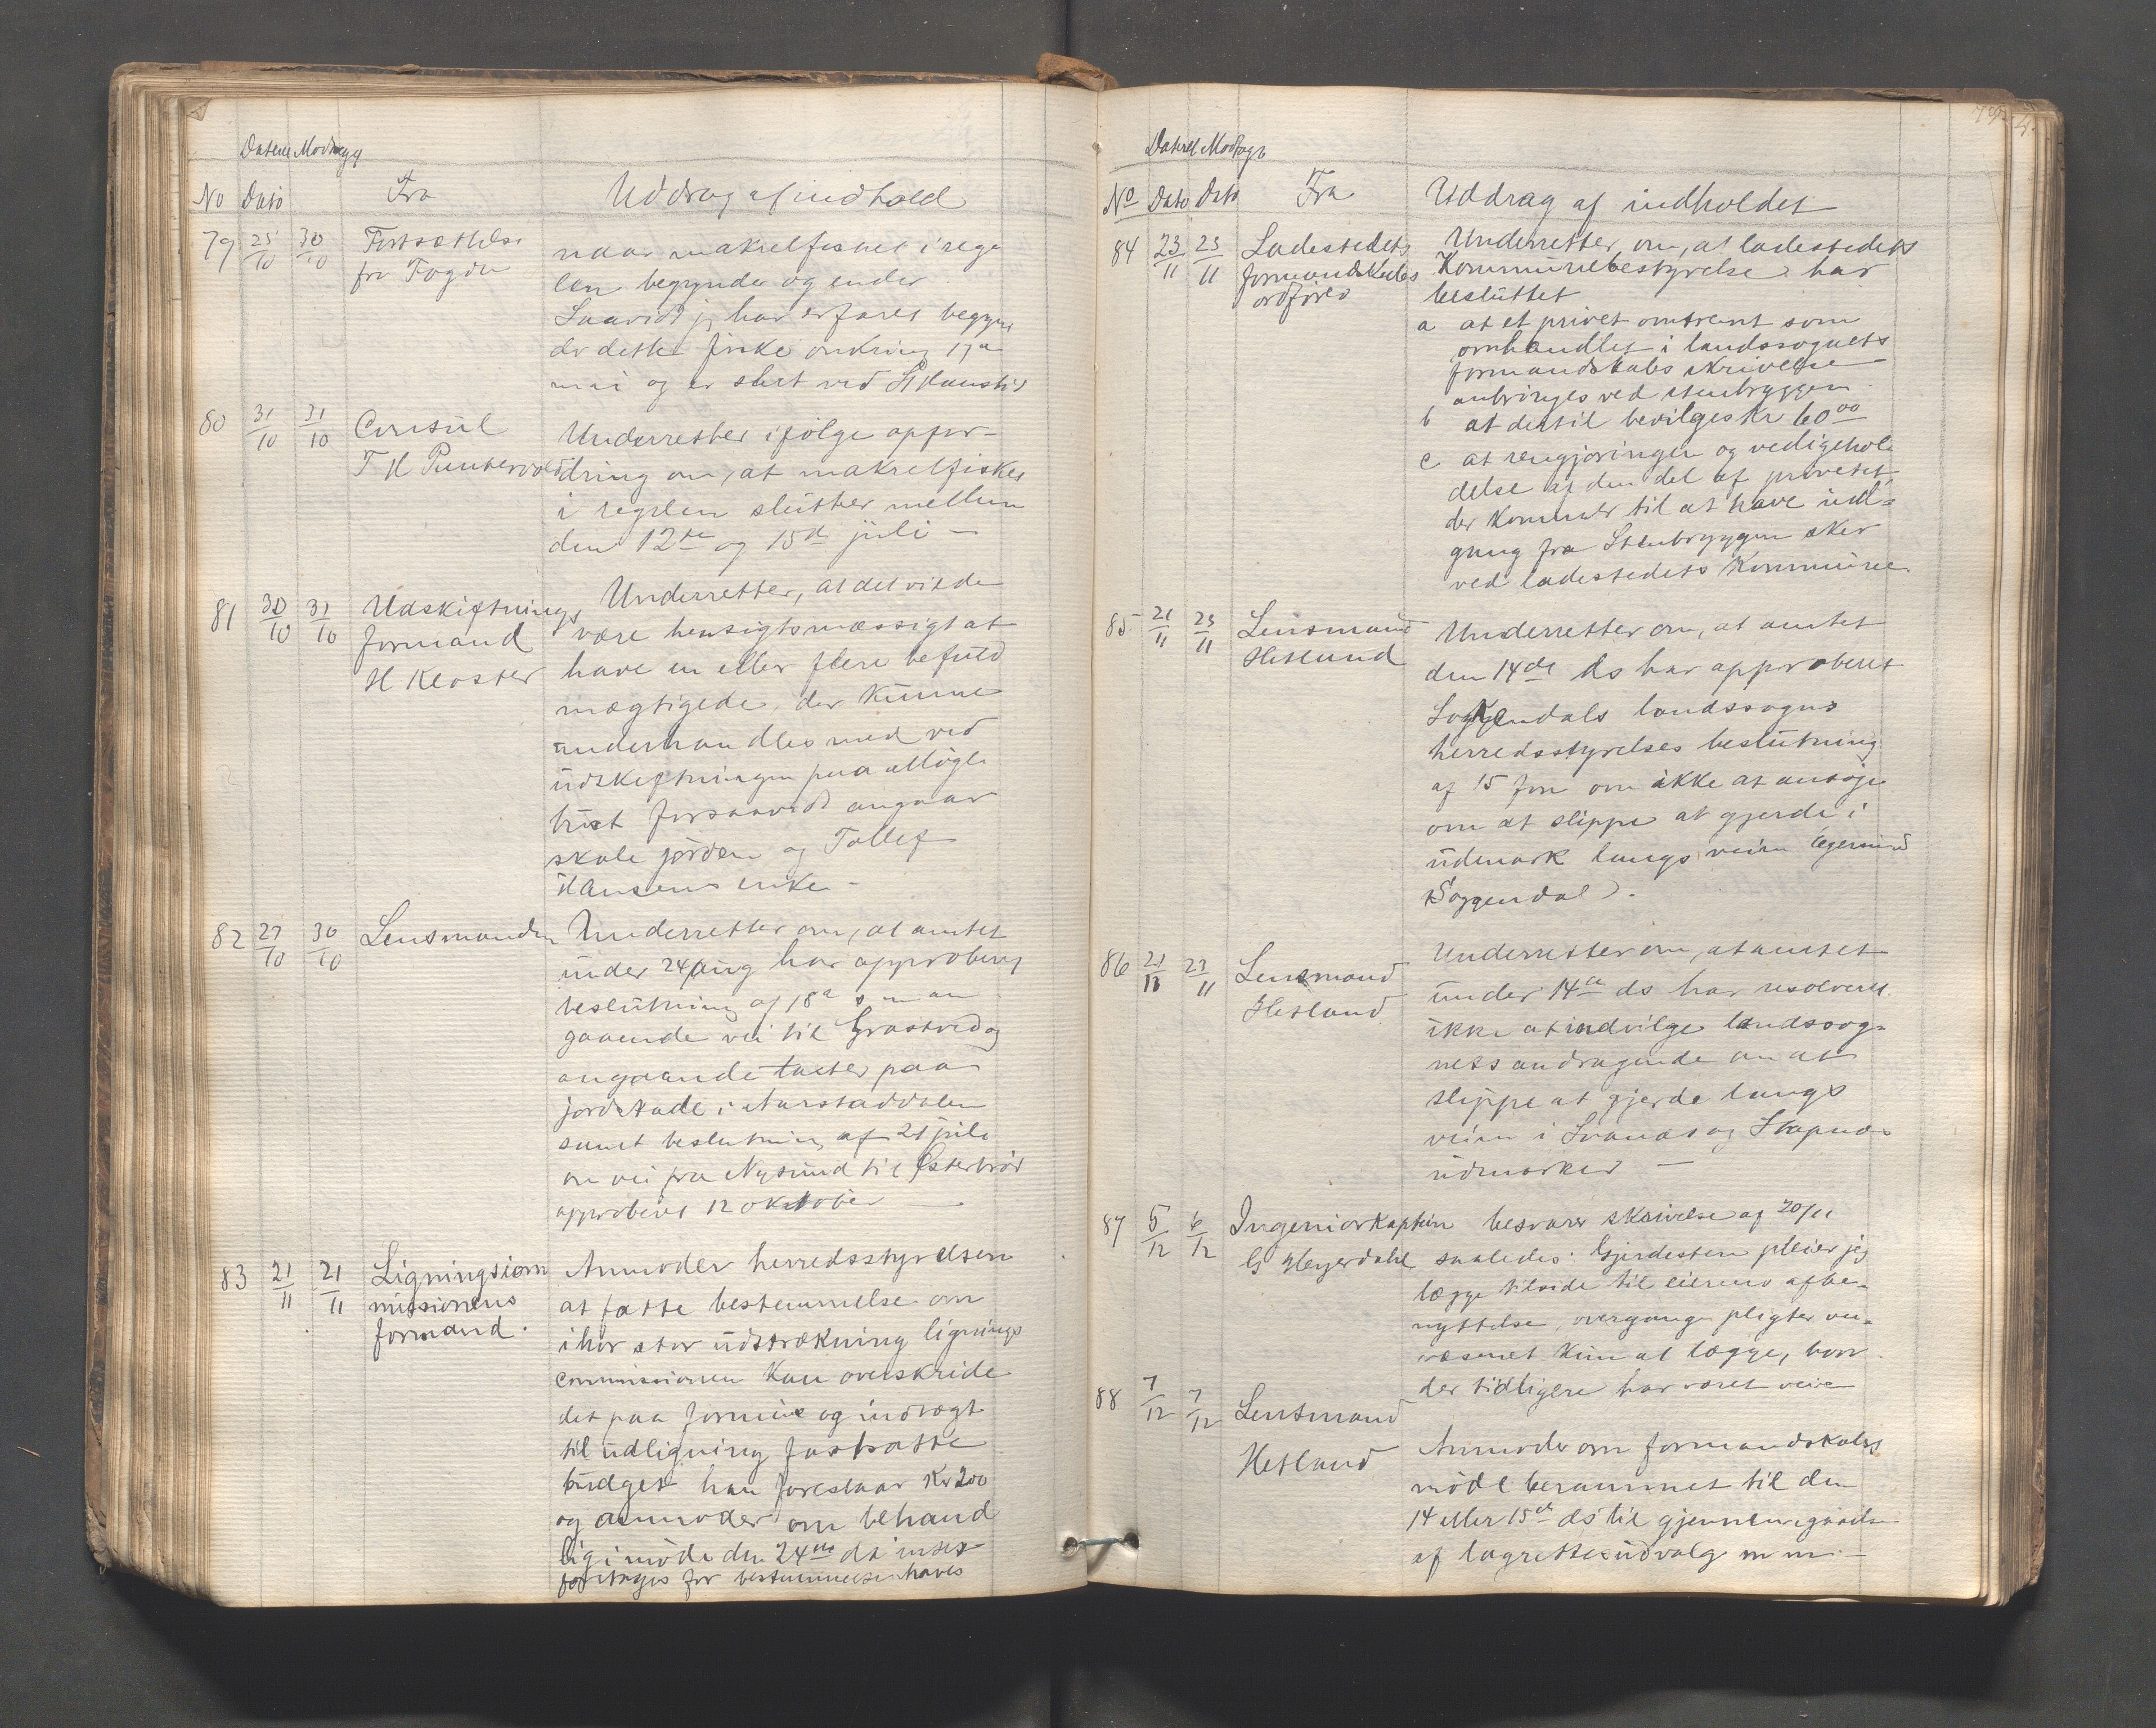 Dateret Modtagt
No Dato Fra Uddrag af indhold
79 25/10 30/10 Fortsættelse fra Fogden
naar makrelfisket i rege
len begynder og ender
Saavidt jeg har erfaret begyn
der dette fiske omkring 17de
mai og er slut ved St Hanstid
80 31/10 31/10 Consul T H Puntervold
Underretter ifølge opfor-
dring om, at makrelfisket
i regelen slutter mellem
den 12te og 15de juli —
81 30/10 31/10 Udskiftnings formand H Kloster
Underretter, at det vilde
være hensigtsmæssigt at
have en eller flere befuld
mægtigede, der kunne
underhandles med ved
udskiftningen paa
forsaavidt angaar
skole jorden og Tollef
Hansens enke —
82 27/10 30/10 Lensmanden
Underretter om, at amtet
under 24 aug har approberet
beslutning af 18de s m an
gaaende vei til Grastved og
angaaende takster paa
jordskade i Aarstaddalen
samt beslutning af 21 juli
om vei fra Nysund til Østerbrød
approberet 12 oktober —
83 21/11 21/11 Ligningscom missionens formand.
Anmoder herredsstyrelsen
at fatte bestemmelse om
i hvor stor udstrækning lignings
commissionen kan overskride
det paa formue og indtægt
til udligning fastsatte
budget han foreslaar Kr 200
og anmoder om behand
lig i møde den 24de ds intet
foretages før bestemmelsen haves
Dateret Modtagt
No Dato Dato Fra Uddrag af indholdet
84 23/11 23/11 Ladestedets formandskabs ordfører
Underretter om, at ladestedets
Kommunebestyrelse har
besluttet
a at et privet omtrent som
omhandlet i landssognets
formandskabs skrivelse
anbringes ved stenbryggen
b at dertil bevilges Kr 60 00
c at rengjøringen og vedligehol
delse af den del af privetet
der kommer til at have ud-
gang fra Stenbryggen sker
ved ladestedets Kommune
85 21/11 23/11 Lensmand Hetland
Underretter om, at amtet
den 14de ds har approberet
Soggendals landssogns
herredsstyrelses beslutning
af 15 fm om ikke at ansøge
om at slippe at gjerde i
udmark langs veien Egersund
Soggendal).
86 21/11 23/11 Lensmand Hetland
Underretter om, at amtet
under 14de ds har resolveret
ikke at indvilge landssog-
nets andragende om at
slippe at gjerde langs
veien i Svanes og Stapnes
udmarker —
87 5/12 6/12 Ingeniørkaptein G Heyerdahl
besvarer skrivelse af 20/11
saaledes: Gjerdesten pleier jeg
lægge tilside til eierens afbe-
nyttelse, overgange pligter vei-
væsenet kun at lægge, hvor
der tidligere har været veie
88 7/12 7/12 Lensmand Hetland
Anmoder om formandskabs
møde berammet til den
14 eller 15de ds til gjennemgaaelse
af lagretteudvalg m m. —